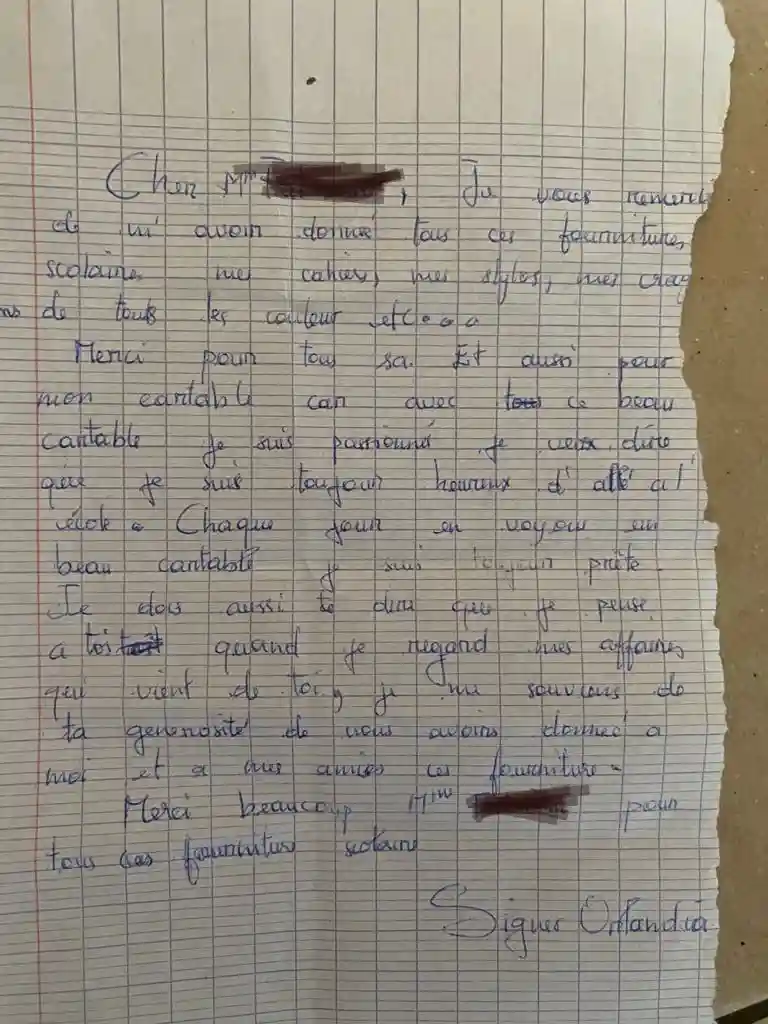 Cher Mme, Je vous remerci
de m'avoir donné tous ces fourniture,
scolaire mes cahiers, mes stylos, mes cray
ons de touts les couleur etc...
Merci pour tous sa. Et aussi pour
mon cartable car avec ce beau
cartable je suis passionné je veux dire
que je suis toujour heureux d'allé a l'
école. Chaque jour en voyou un
beau cartable je suis toujour prête.
Je dois aussi te dire que je pense
a toi quand je regard mes affaires
qui vient de toi, je me souviens de
ta generosité de vous avoirs donneé a
moi et a mes amies ces fourniture.
Merci beaucoup Mme pour
tous ces fourniture scolaire
Signer Orlandia